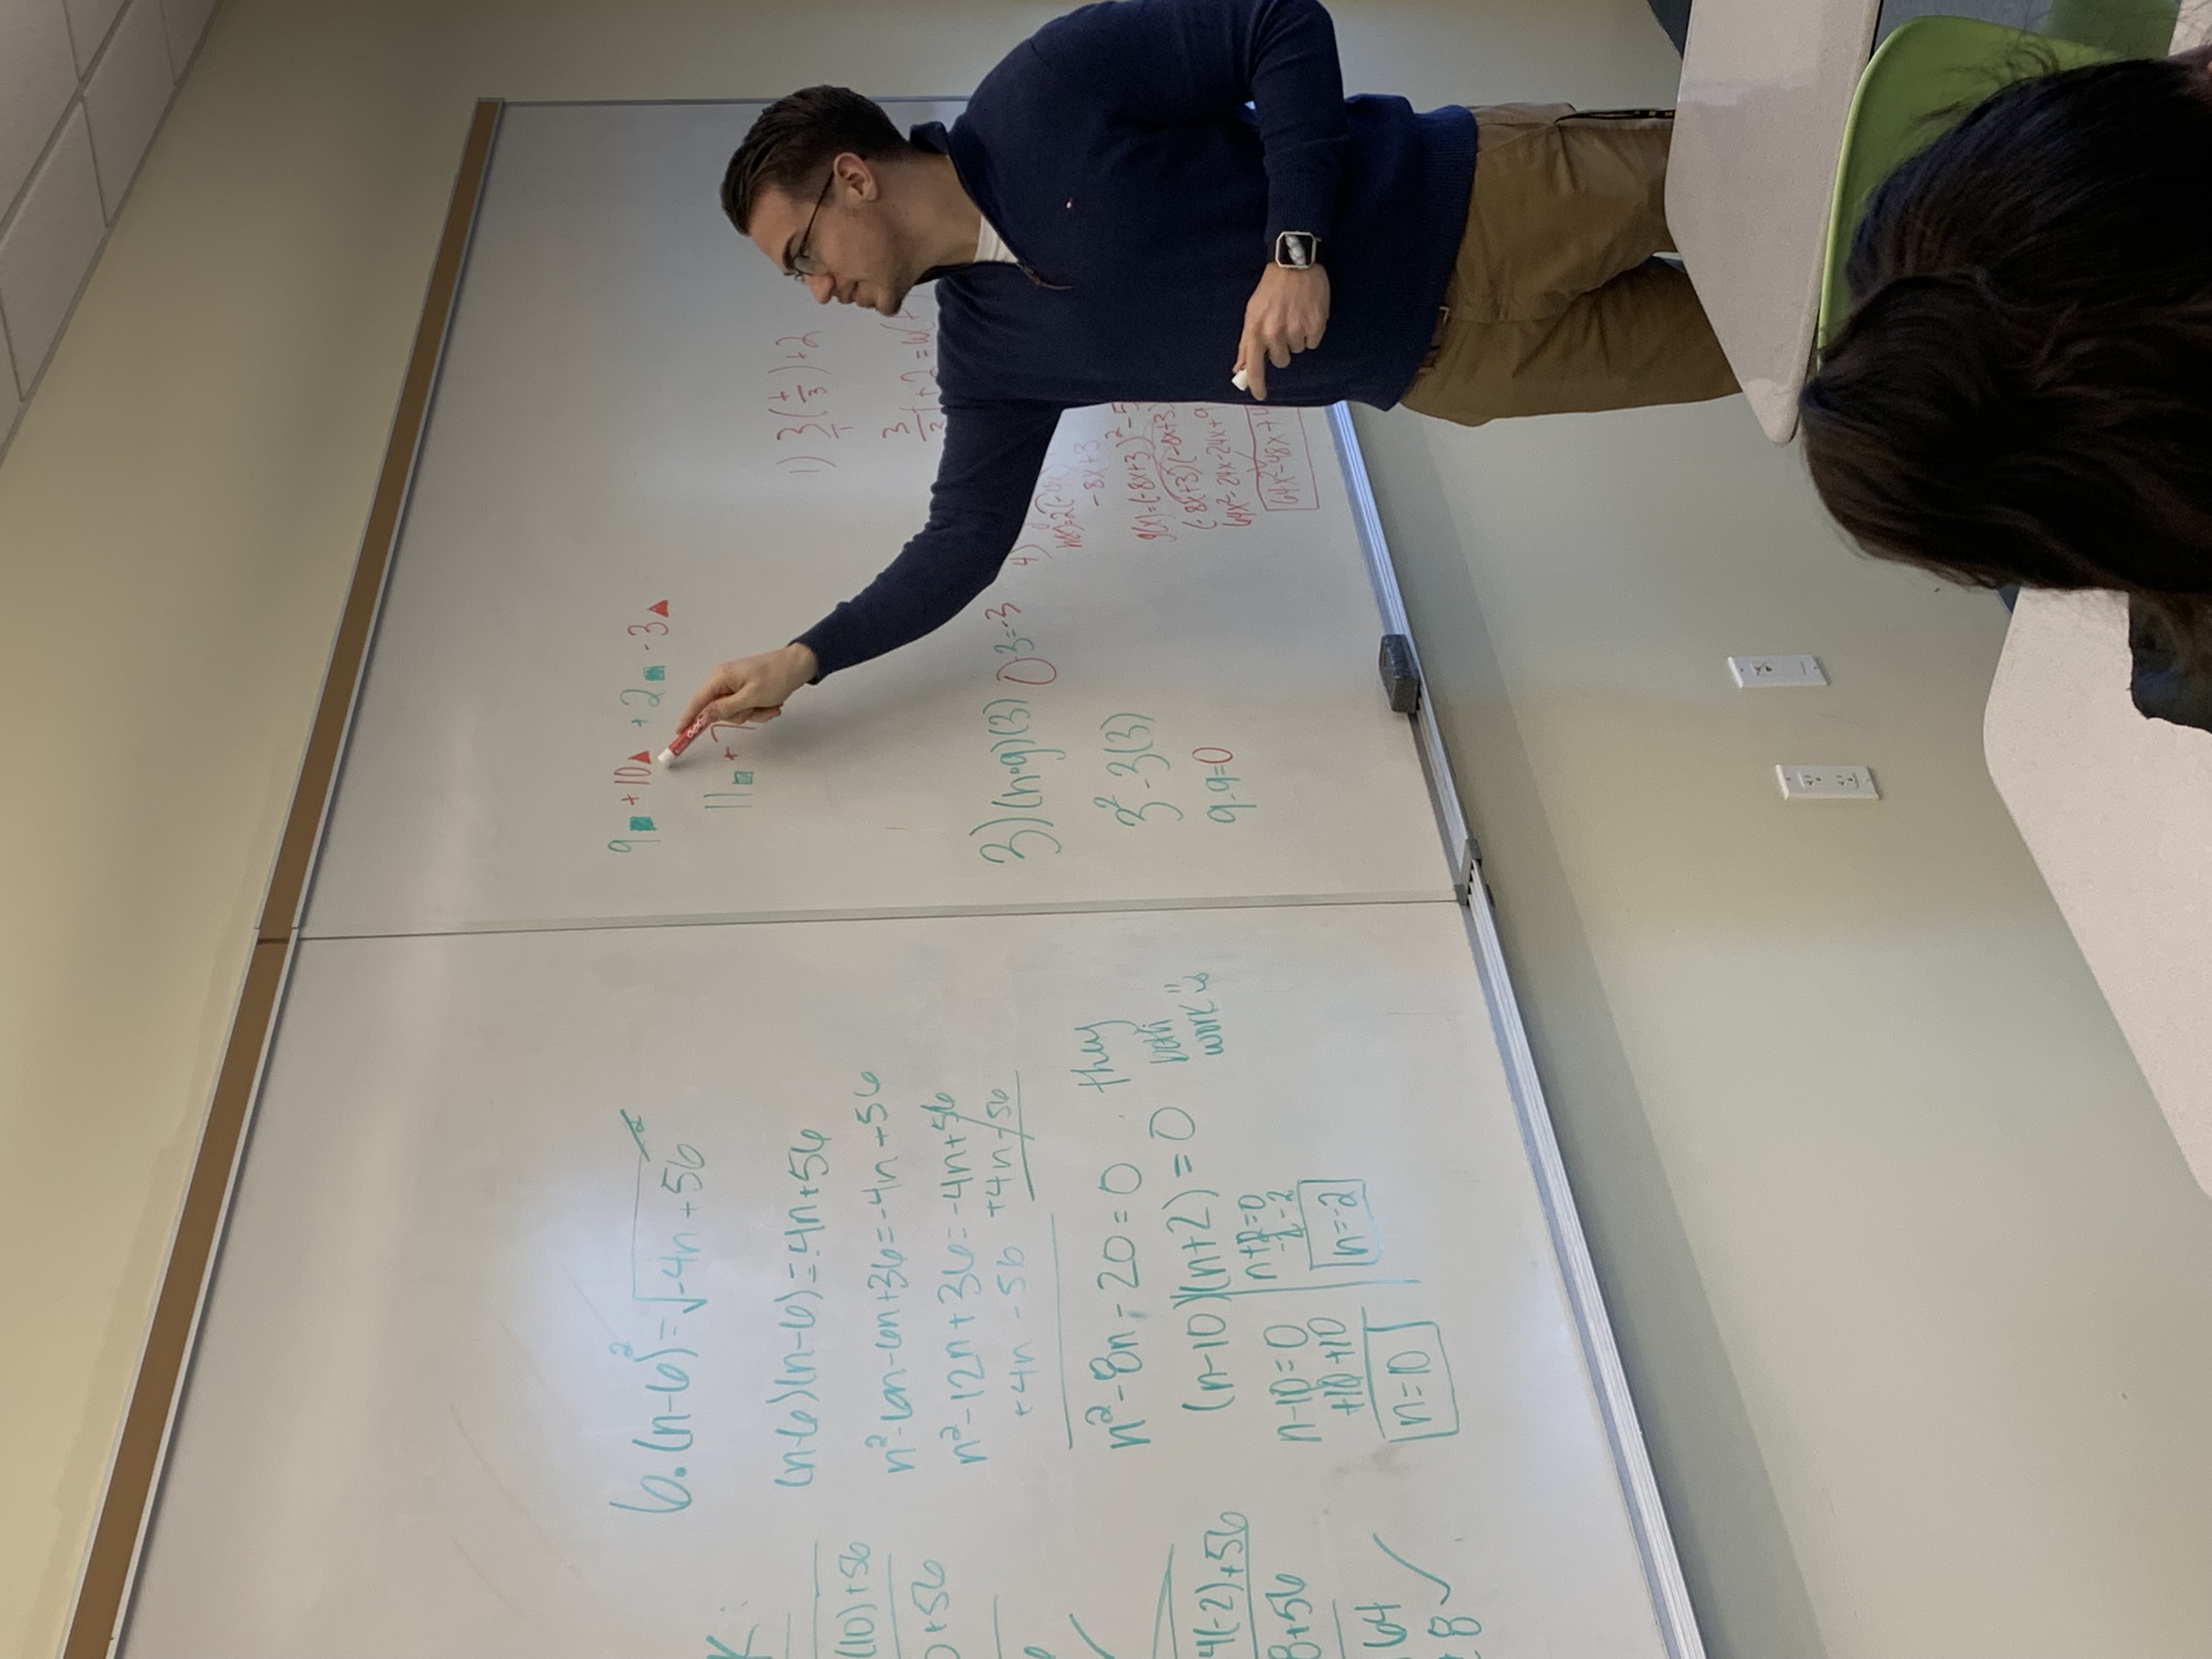 K
(10)+56
+56
4(-2)+56
8+56
64
8 ✓
6. (n-6)² = √-4n+56 ²
(n-6)(n-6) = -4n+56
n²-6n-6n+36 = -4n+56
n²-12n+36 = -4n+56
+4n -56 +4n -56
n²-8n-20=0
they both work
(n-10)(n+2)=0
n-10=0
+10 +10
n=10
n+2=0
-2 -2
n=-2
9■ +10▲ +2■ -3▲
11■ +7
3) (h∘g)(3)
0-3=-3
3²-3(3)
9-9=0
1) 3/1 (t/3)+2
4)
-8x+3
g(x)=(-8x+3)²-5
(-8x+3)(-8x+3)
64x²-24x-24x+9
64x²-48x+4